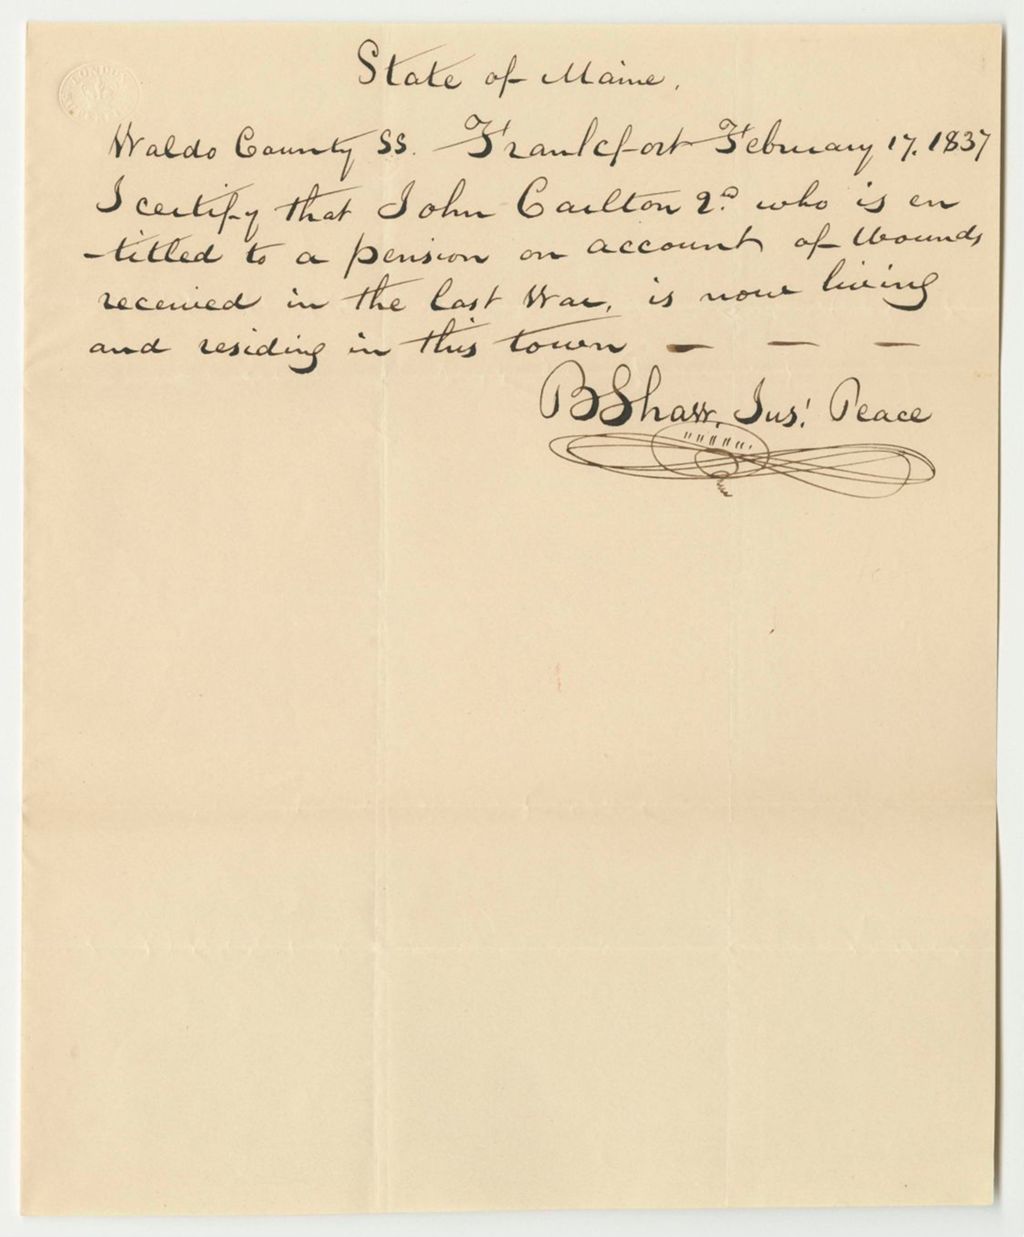 State of Maine.
Waldo County SS. Frankfort February 17. 1837
I certify that John Carlton 2d who is en
-titled to a pension on account of Wounds
received in the last War, is now living
and residing in this town — — —
B Shaw, Jus! Peace
LONDON